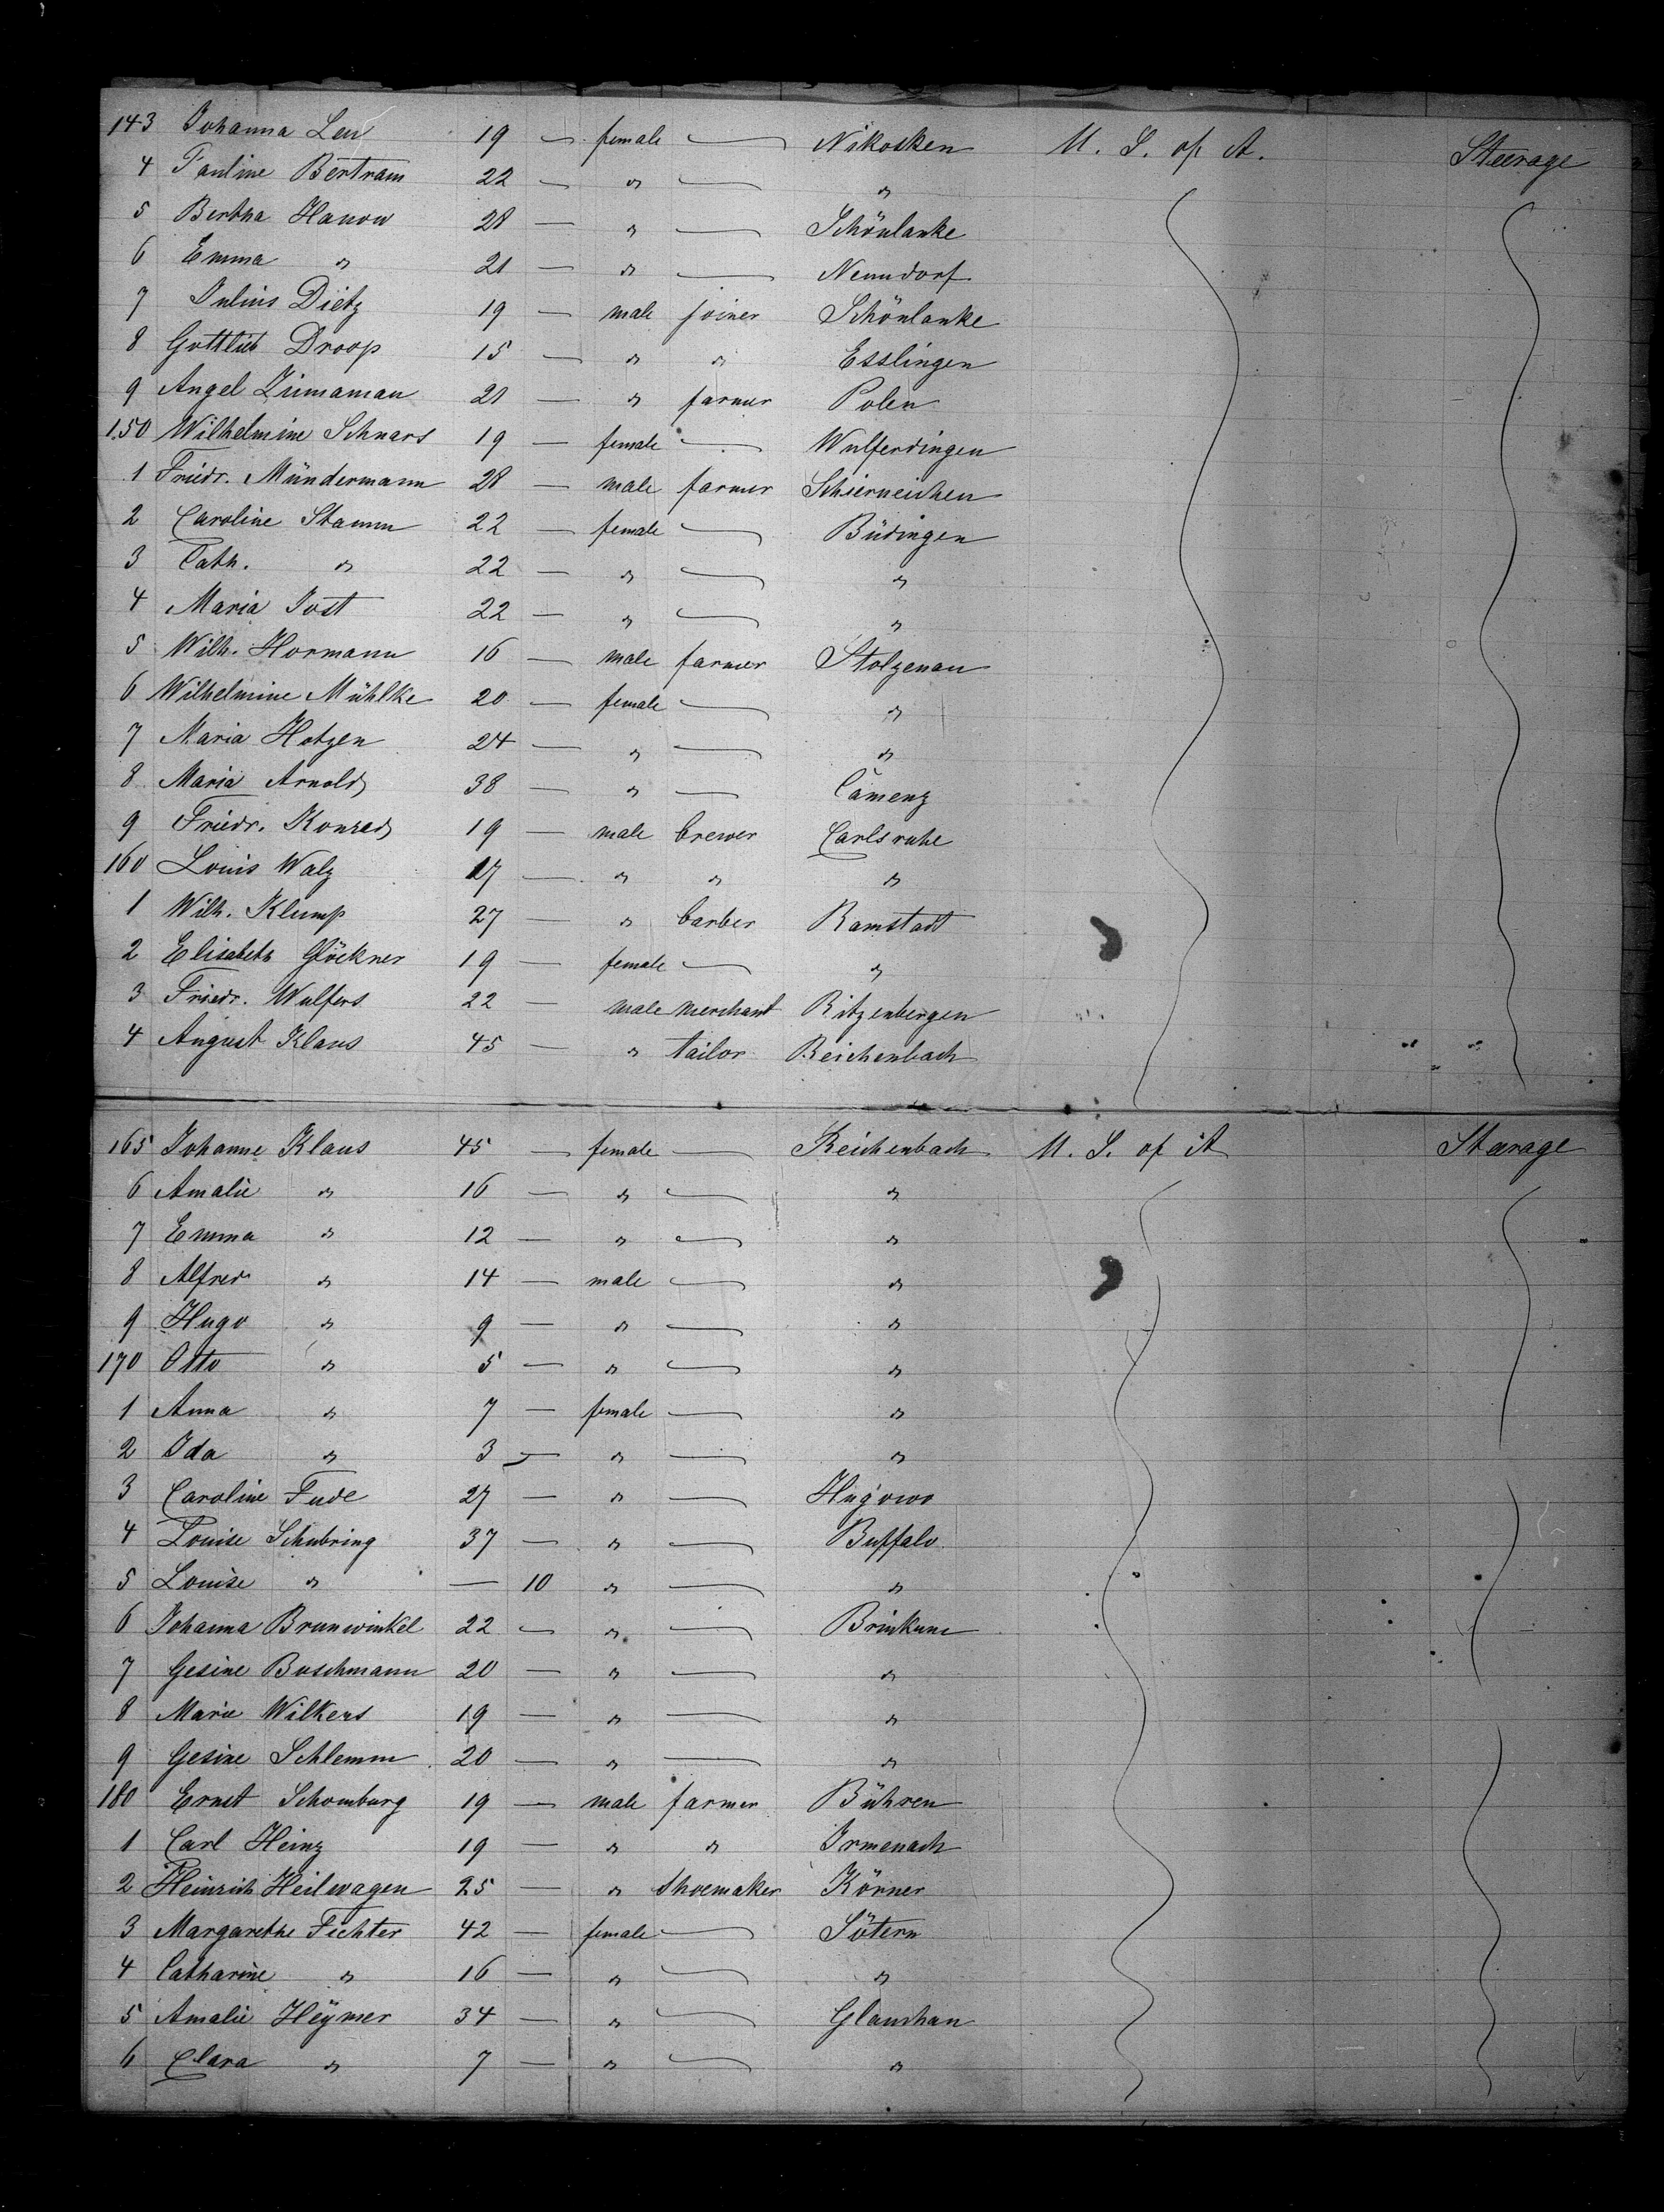 143 Johanna Leu 19 — female — Nikosken U. S. of A. Steerage
4 Pauline Bertram 22 — " — "
5 Bertha Hanow 28 — " — Schönlanke
6 Emma " 21 — " — Neundorf
7 Julius Dietz 19 — male joiner Schönlanke
8 Gottlieb Droop 15 — " " Esslingen
9 Angel Zinmaman 21 — " farmer Polen
150 Wilhelmine Schnars 19 — female — Wulferdingen
1 Friedr. Mündermann 28 — male farmer Schierneichen
2 Caroline Stamm 22 — female — Büdingen
3 Cath. " 22 — " — "
4 Maria Jost 22 — " — "
5 Wilh. Hormann 16 — male farmer Stolzenau
6 Wilhelmine Mühlke 20 — female — "
7 Maria Hotzen 24 — " — "
8 Maria Arnold 38 — " — Camenz
9 Friedr. Konrad 19 — male brewer Carlsruhe
160 Louis Walz 17 — " " "
1 Wilh. Klump 27 — " barber Ramstadt
2 Elisabeth Glöckner 19 — female — "
3 Friedr. Wulfers 22 — male merchant Ritzenbergen
4 August Klaus 45 — " tailor Reichenbach
165 Johanne Klaus 45 — female — Reichenbach U. S. of A Steerage
6 Amalie " 16 — " — "
7 Emma " 12 — " — "
8 Alfred " 14 — male — "
9 Hugo " 9 — " — "
170 Otto " 5 — " — "
1 Anna " 7 — female — "
2 Ida " 3 — " — "
3 Caroline Fude 27 — " — Hugowo
4 Louise Schubring 37 — " — Buffalo
5 Louise " — 10 " — "
6 Johanna Brunwinkel 22 — " — Brinkum
7 Gesine Buschmann 20 — " — "
8 Marie Wilkens 19 — " — "
9 Gesine Schlemm 20 — " — "
180 Ernst Schomburg 19 — male farmer Bühren
1 Carl Heinz 19 — " " Irmenach
2 Heinrich Heilwagen 25 — " Shoemaker Körner
3 Margarethe Fichter 42 — female — Sötern
4 Catharine " 16 — " — "
5 Amalie Heymer 34 — " — Glauchau
6 Clara " 7 — " — "